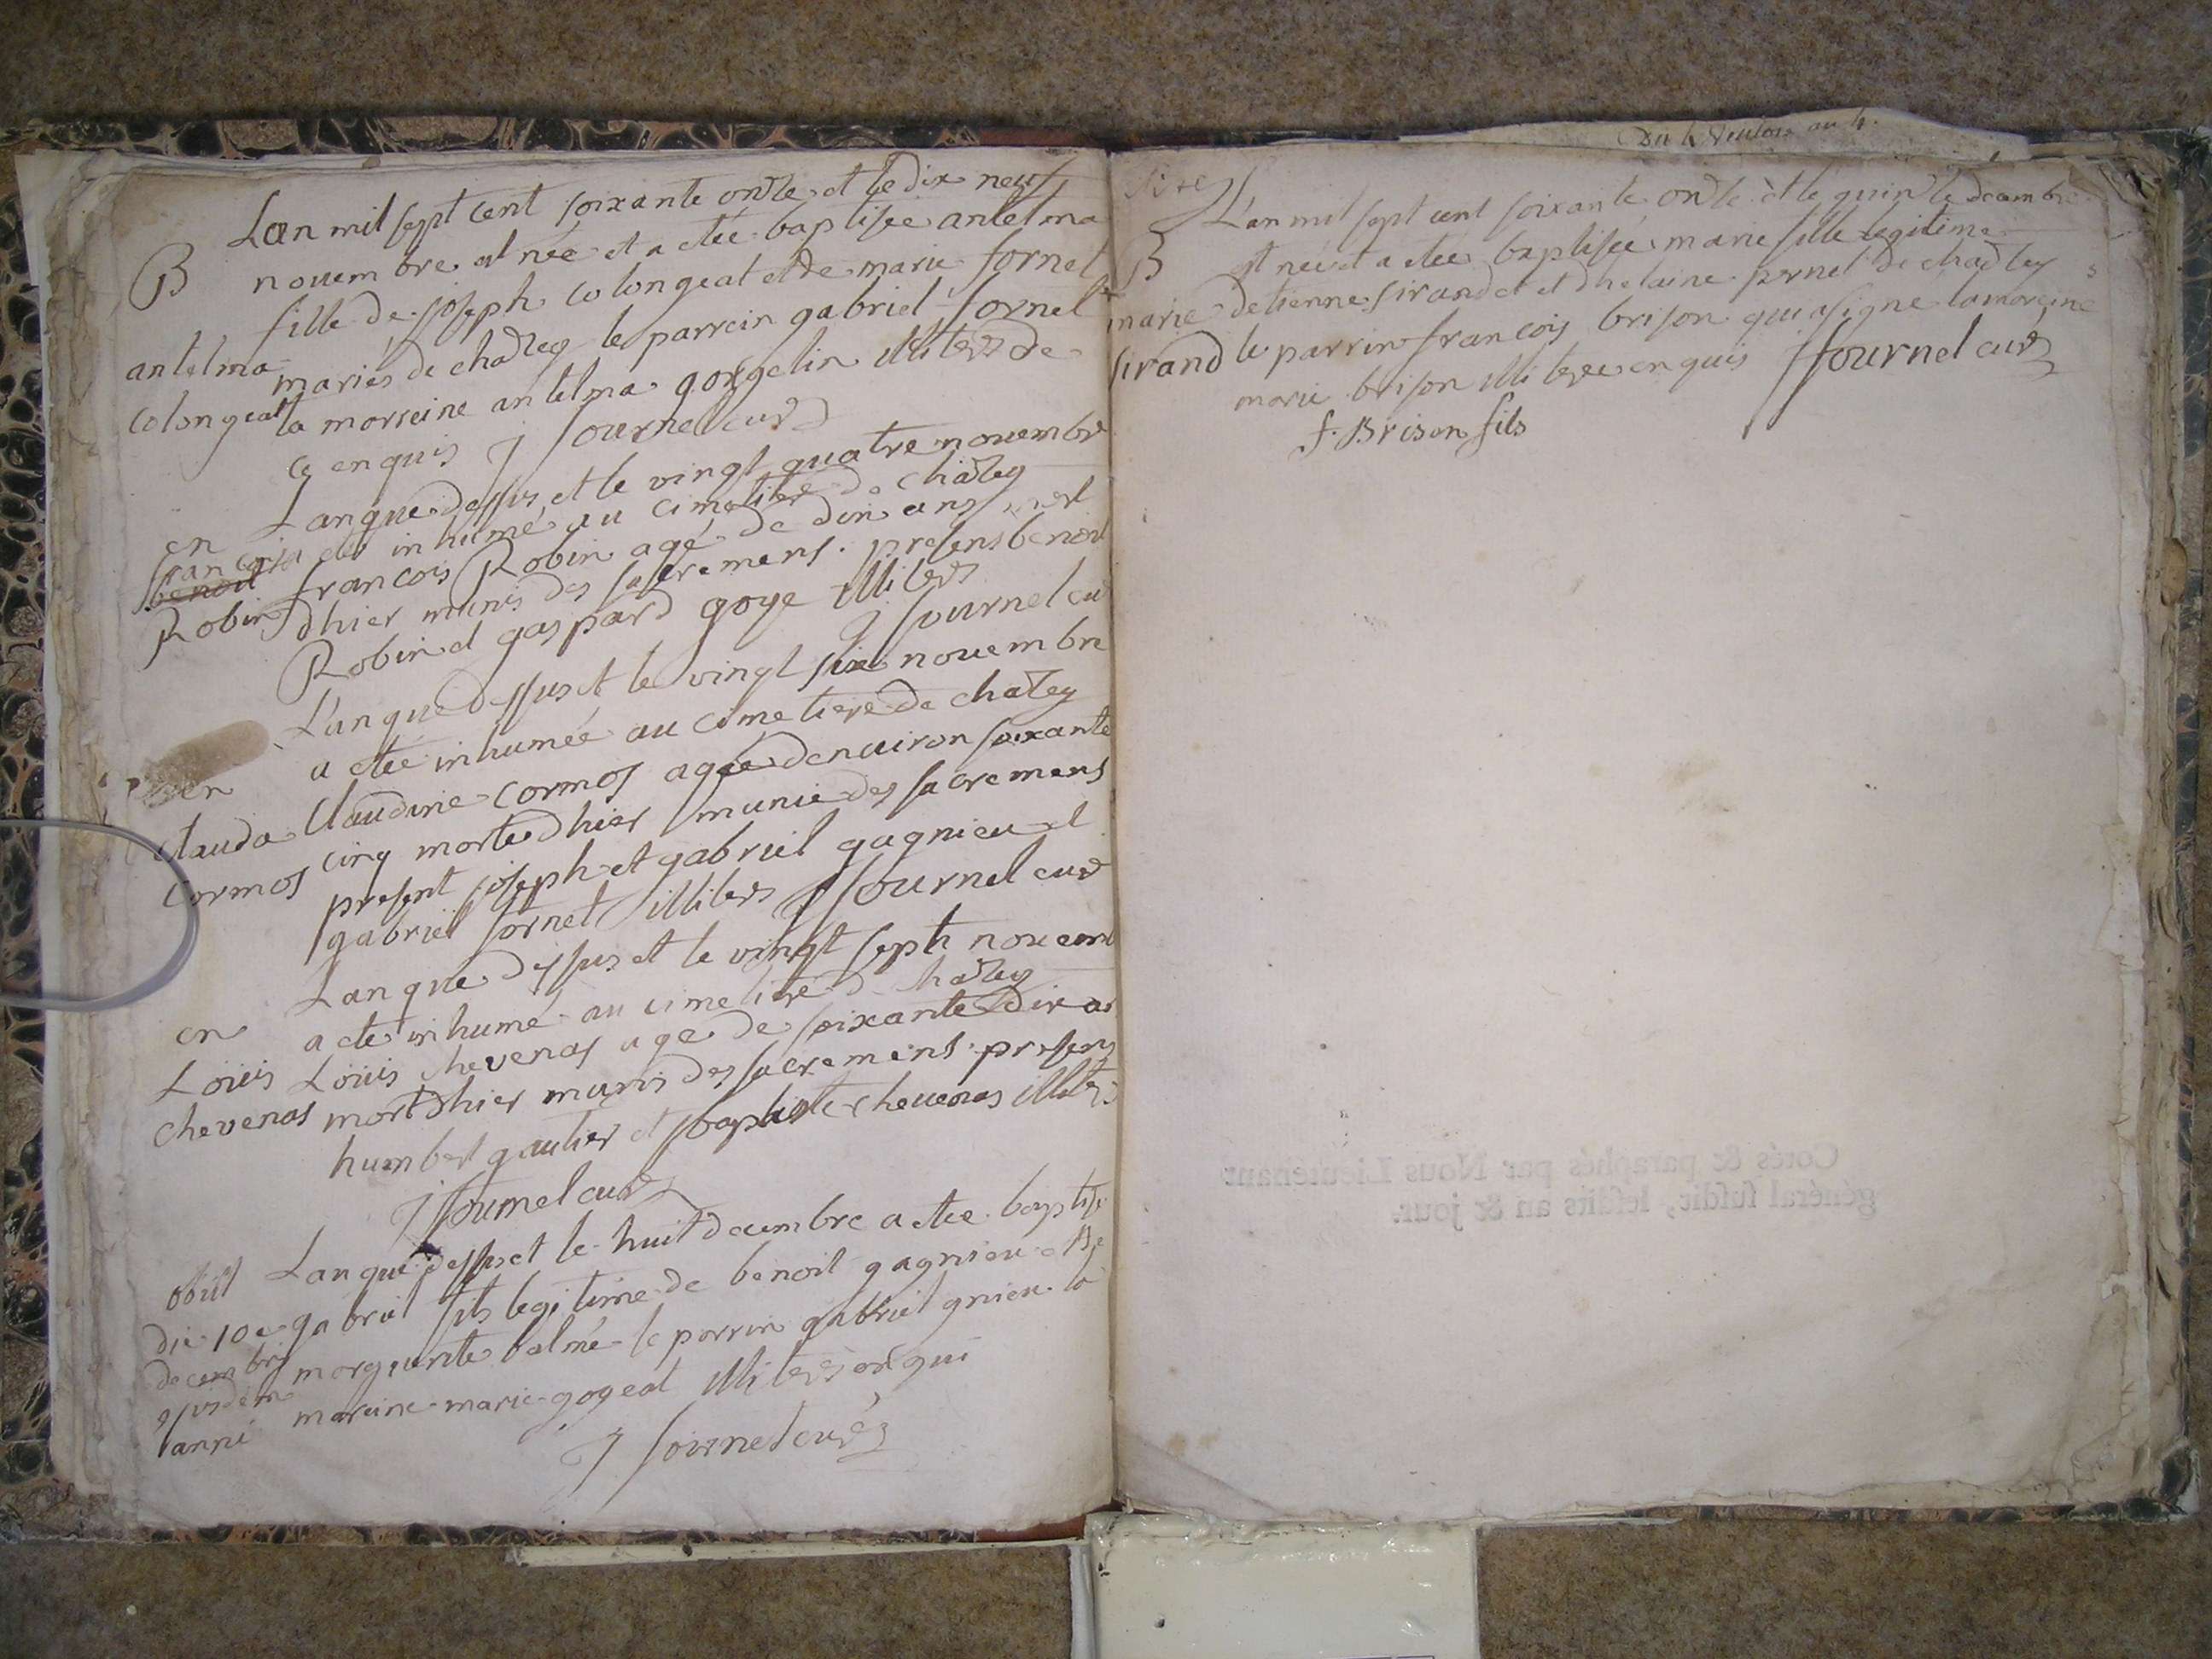 Lan mil sept cent soixante onze et le dix neuf
B
novembre est née et a étée baptisée antelma
fille de joseph colongeat et de marie fornet
antelma
mariés de chazey le parrein gabriel fornet
colongeat
la marreine antelma gorgelin illiterés de
ce enquis J fournel curé
Lanque dessus et le vingt quatre novembre
en
a été inhumé au cimetiere de chazey
francois
benoit
francois Robin agé de dix ans
Robin
dhier munis des sacremens. presens benoit
Robin et gaspard goye illiterés
J fournel cu
Lanque dessus et le vingt six novembre
a étée inhumée au cimetiere de chazey
en
clauda
Claudine cormos agée denviron soixante
cormos
cinq morte dhier munie des sacremens
present joseph et gabriel gagnieu et
gabriel fornet illiterés J fournel curé
Lanque dessus et le vingt sept novem
en
a été inhumé au cimetiere de chazey
Loüis
Loüis chevenas agé de soixante dix an
chevenas
mort dhier munis des sacremens. presens
humbert gautier et baptiste chevenas illiterés
J fournel curé
obiit
Lanque dessus et le huit decembre a étée baptisé
die 10 a
gabriel fils legitime de benoit gagnieu et de
decembris
marguerite balme le parrin gabriel gnieu la
ejusdem
mareine marie gogeat illiterés enqui
anni
J fournel curé
Du 4 Ventose an 4.
L'an mil sept cent soixante onze et le quinze decembre
B
est née et a étée baptisée marie fille legitime
marie
detienne sirand et dhelaine fornet de chazey
sirand
le parrin francois brison qui a signé la mareine
marie brison illiterée enquis J fournel curé
f. Brison fils
Cotés & paraphés par Nous Lieutenant
général susdit, lesdits an & jour.